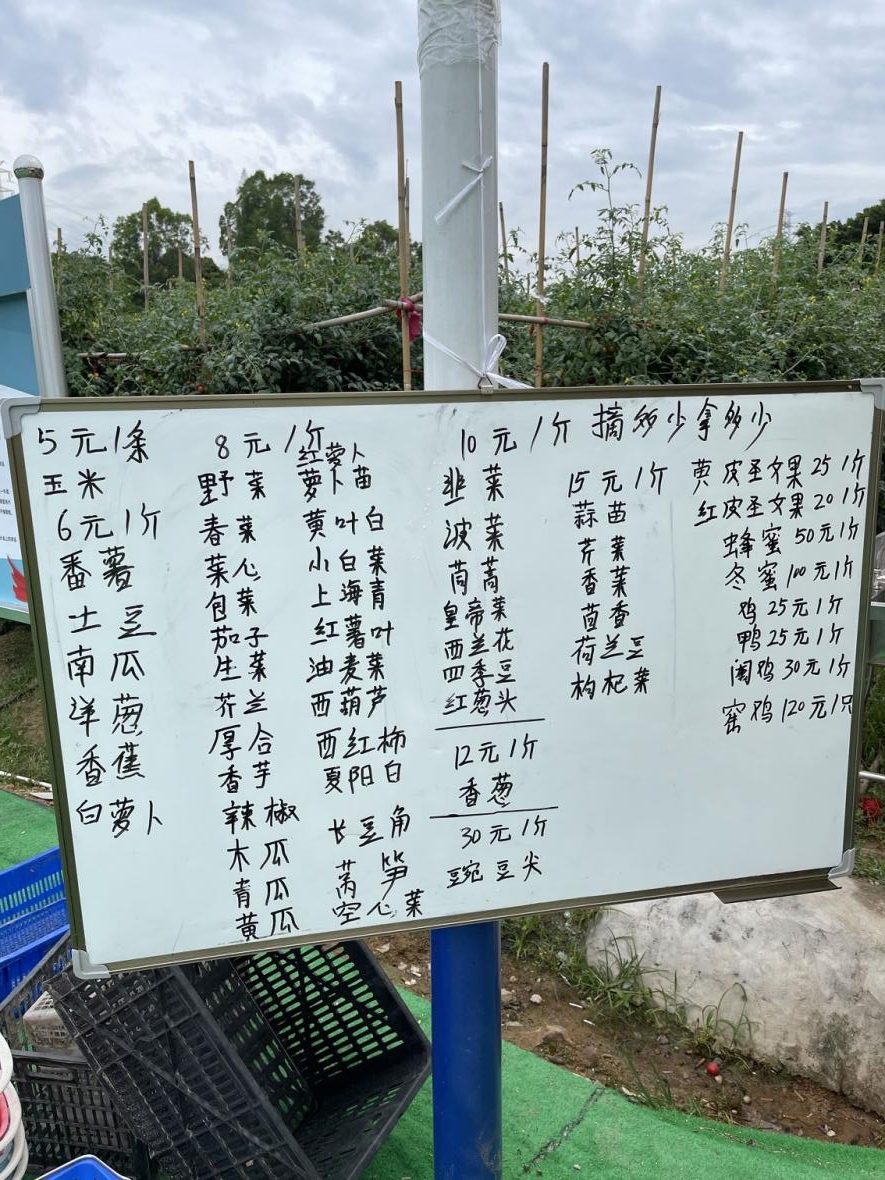 5元1条
玉米
6元1斤
番薯
土豆
南瓜
洋葱
香蕉
白萝卜
8元1斤
野菜
春菜
菜心
包菜
茄子
生菜
芥兰
厚合
香芋
辣椒
木瓜
青瓜
黄瓜
红萝卜
萝卜苗
黄叶白
小白菜
上海青
红薯叶
油麦菜
西葫芦
西红柿
夏阳白
长豆角
莴笋
空心菜
10元1斤 摘多少拿多少
韭菜
波菜
茼蒿
皇帝菜
西兰花
四季豆
红葱头
12元1斤
香葱
30元1斤
豌豆尖
15元1斤
蒜苗
芹菜
香菜
茴香
荷兰豆
枸杞菜
黄皮圣女果251斤
红皮圣女果201斤
蜂蜜50元1斤
冬蜜100元1斤
鸡25元1斤
鸭25元1斤
阉鸡30元1斤
窑鸡120元1只